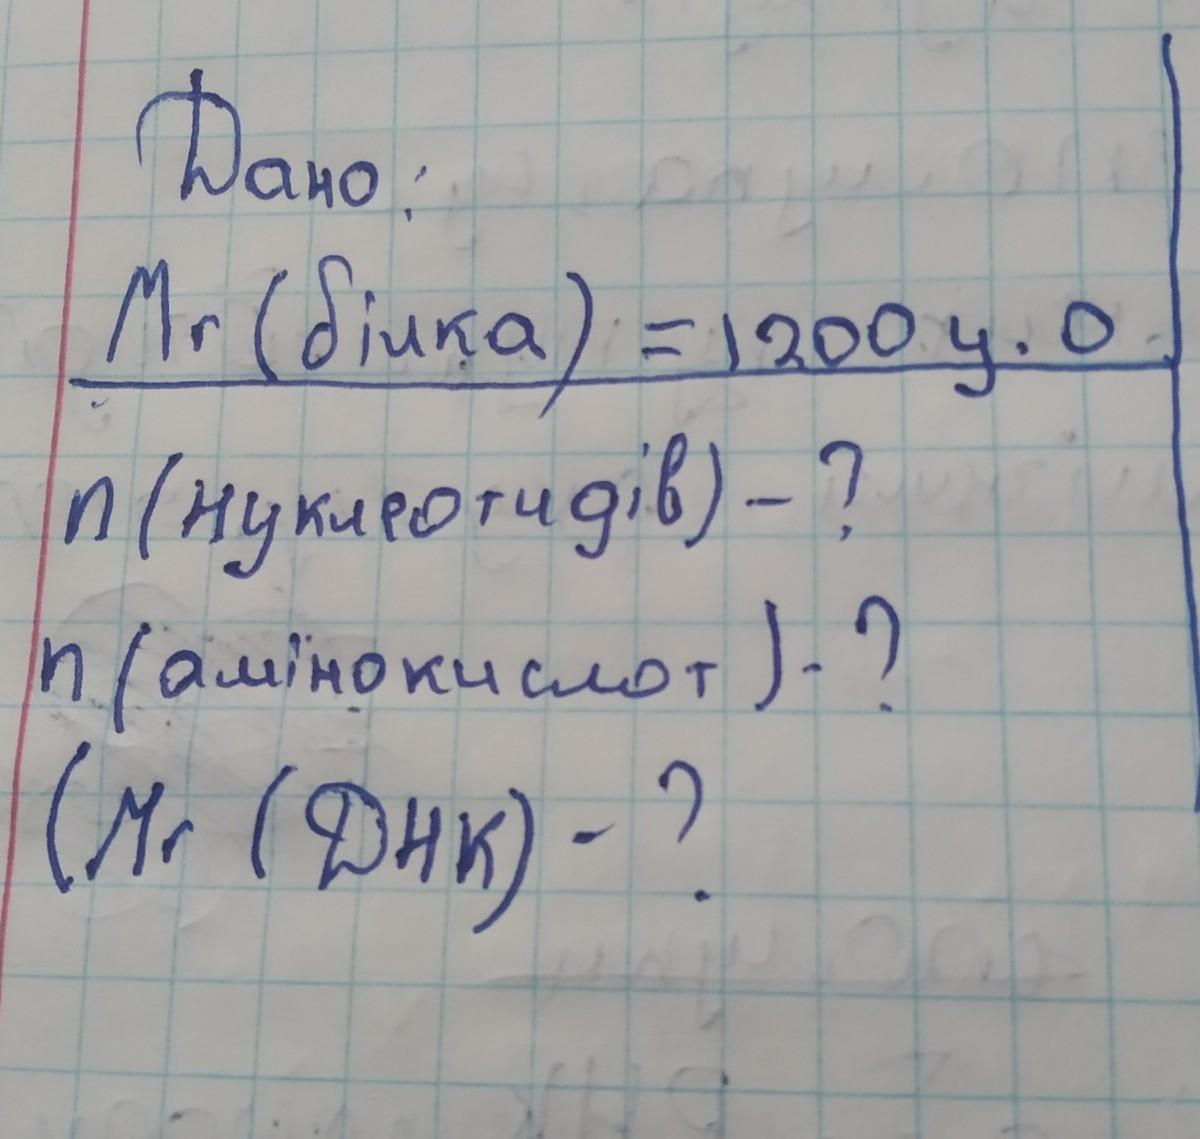 Дано:
Mr (білка) = 1200 у. О
n (нуклеотидів) - ?
n (амінокислот) - ?
(Mr (ДНК) - ?